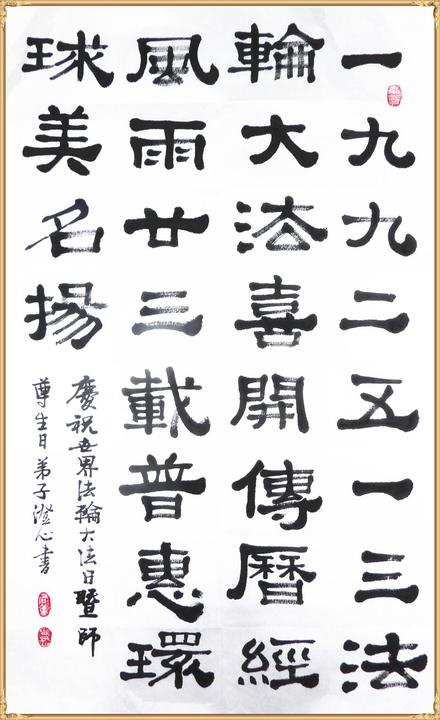 一九九二五一三法
輪大法喜開傳曆經
風雨廿三載普惠環
球美名揚
慶祝世界法輪大法日暨師
尊生日弟子澄心書